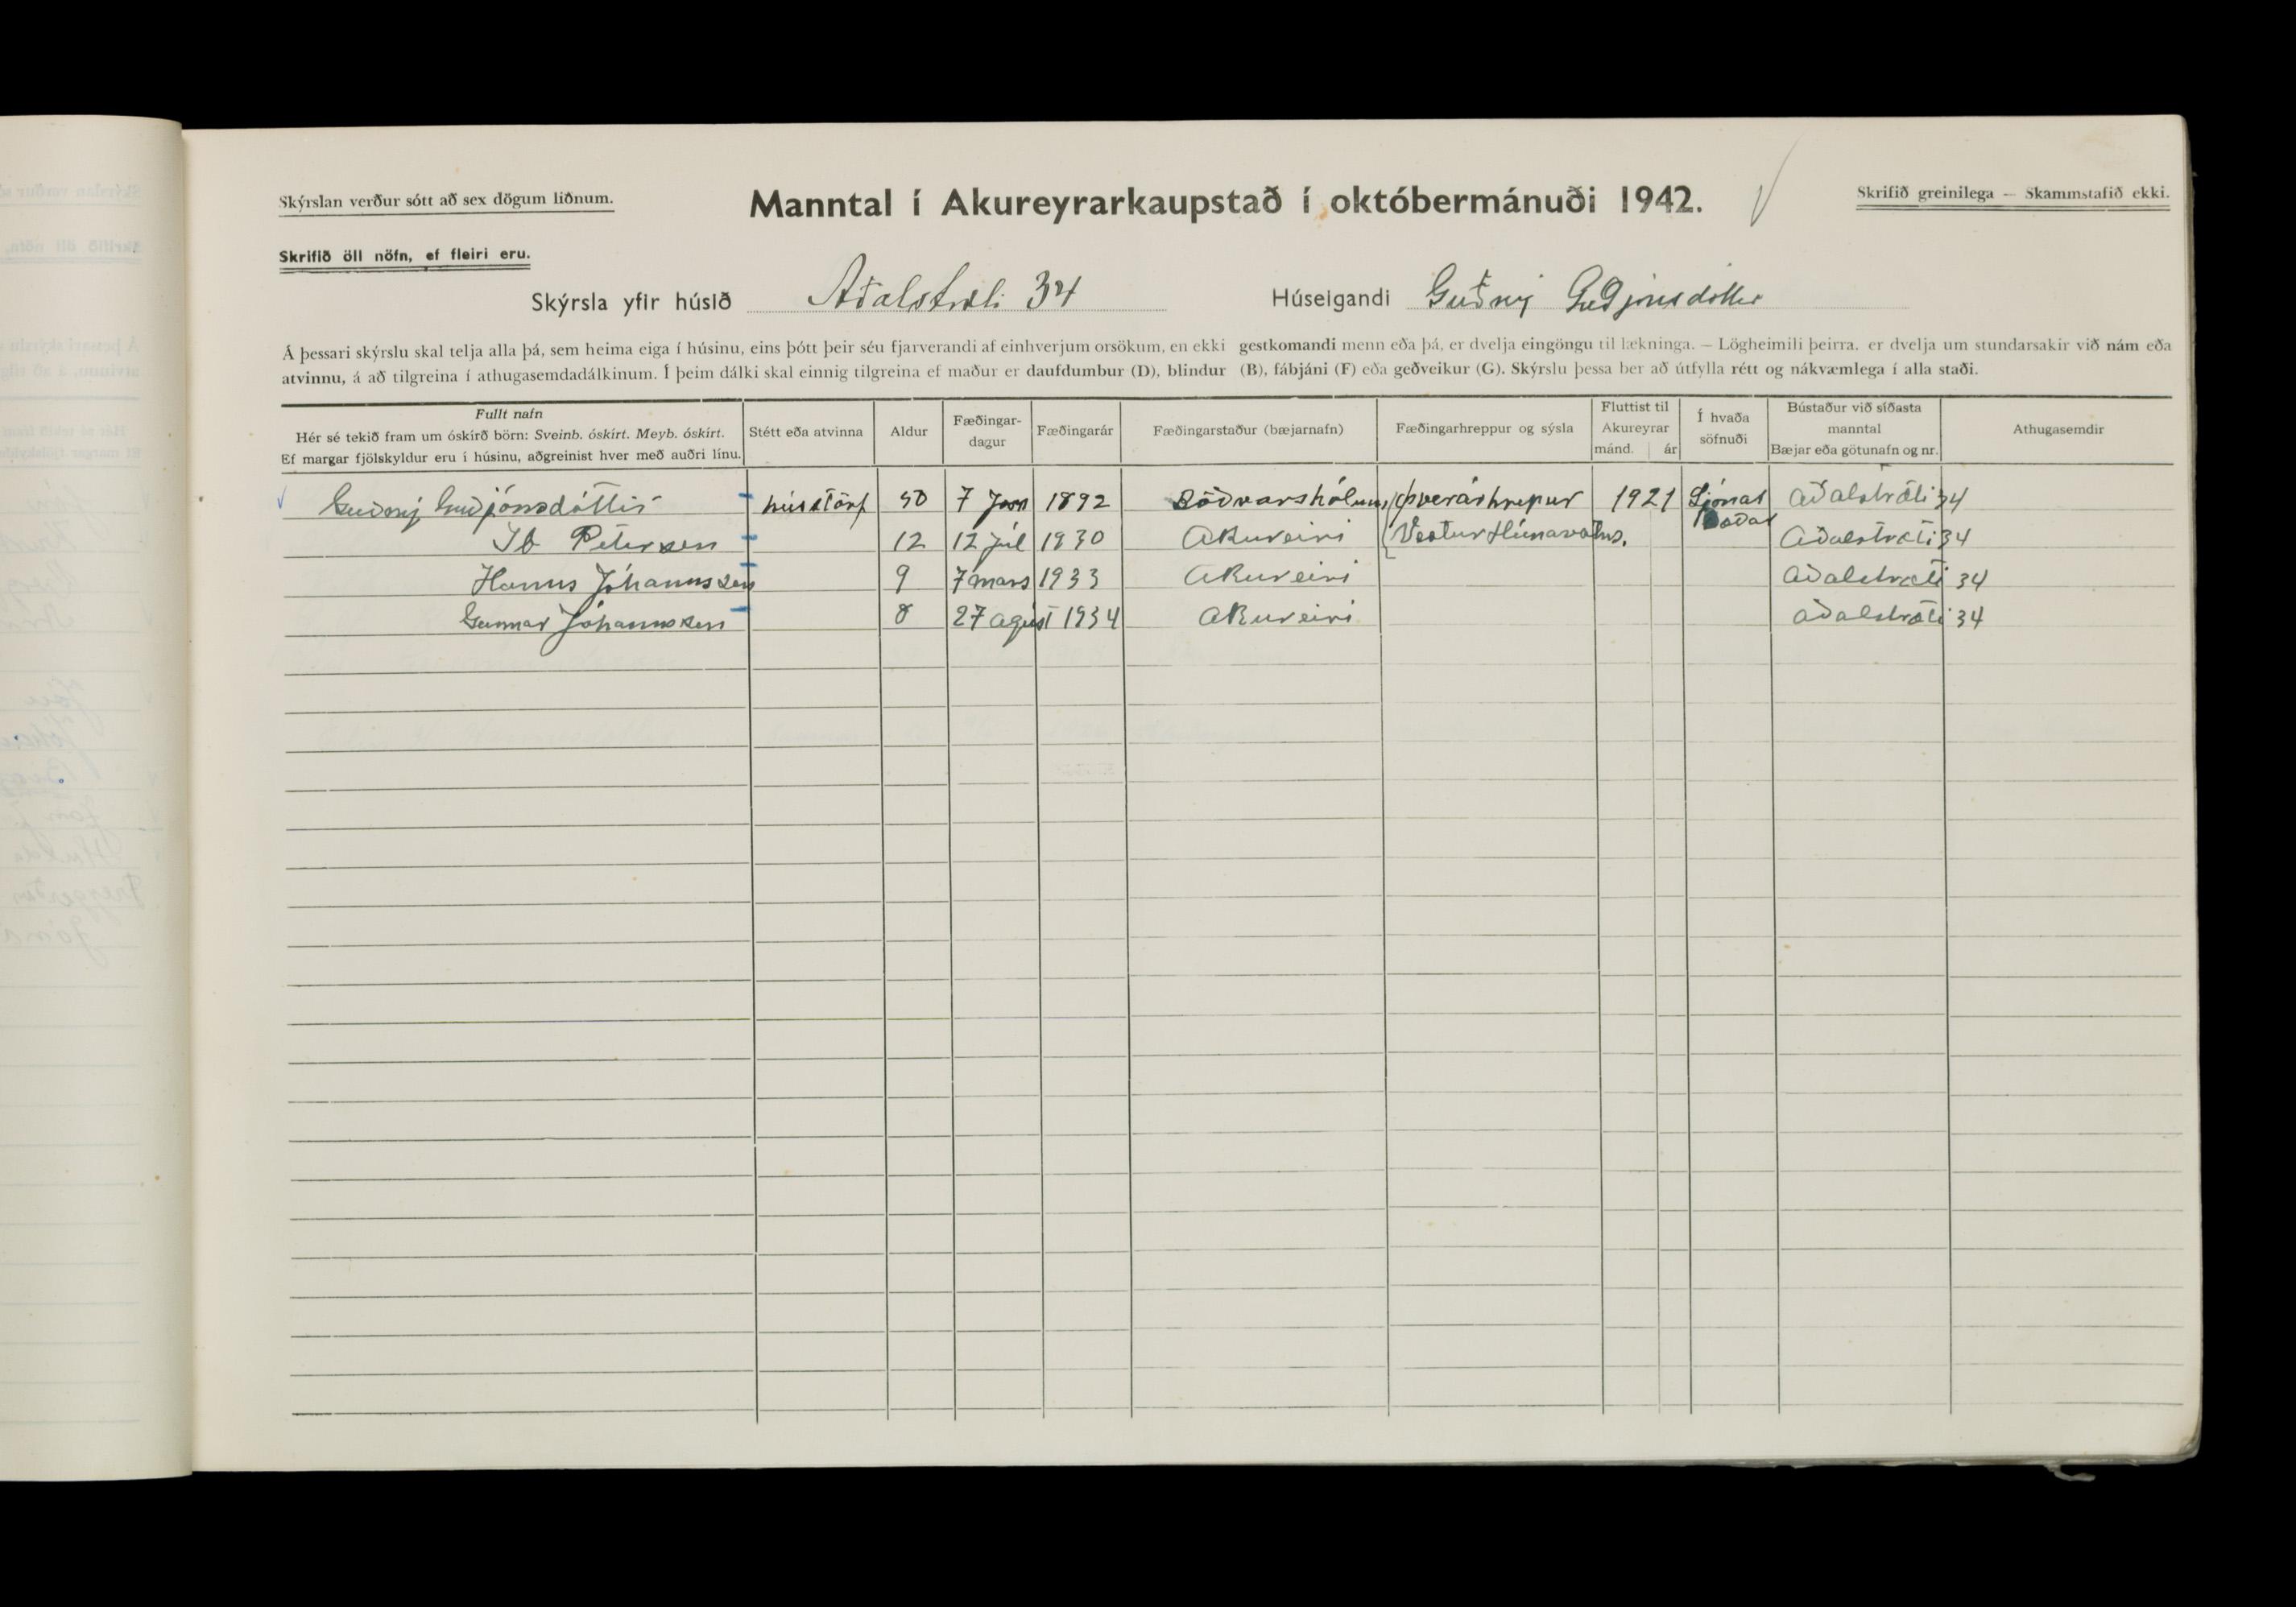 Skýrslan verður sótt að sex dögum liðnum.
Manntal í Akureyrarkaupstað í októbermánuði 1942.
Skrifið greinilega — Skammstafið ekki.
Skrifið öll nöfn, ef fleiri eru.
Skýrsla yfir húsið Aðalstræti 34 Húseigandi Guðný Guðjónsdóttir
Á þessari skýrslu skal telja alla þá, sem heima eiga í húsinu, eins þótt þeir séu fjarverandi af einhverjum orsökum, en ekki gestkomandi menn eða þá, er dvelja eingöngu til lækninga. — Lögheimili þeirra, er dvelja um stundarsakir við nám eða
atvinnu, á að tilgreina í athugasemdadálkinum. Í þeim dálki skal einnig tilgreina ef maður er daufdumbur (D), blindur (B), fábjáni (F) eða geðveikur (G). Skýrslu þessa ber að útfylla rétt og nákvæmlega í alla staði.
Fullt nafn
Hér sé tekið fram um óskírð börn: Sveinb. óskírt. Meyb. óskírt.
Ef margar fjölskyldur eru í húsinu, aðgreinist hver með auðri línu.
Stétt eða atvinna
Aldur
Fæðingar-
dagur
Fæðingarár
Fæðingarstaður (bæjarnafn)
Fæðingarhreppur og sýsla
Fluttist til
Akureyrar
mánd. ár
Í hvaða
söfnuði
Bústaður við síðasta
manntal
Bæjar eða götunafn og nr.
Athugasemdir
Guðný Guðjónsdóttir hússtörf 50 7 Jan 1892 Böðvarshólum Þverárhrepur 1921 Sjónar Aðalstræti 34
Ib Petersen 12 12 júl 1930 Akureiri Vestur Húnavatns. Aðalstræti 34
Hanns Jóhannssen 9 7 mars 1933 Akureiri Aðalstræti 34
Gunnar Jóhannssen 8 27 agúst 1934 Akureiri Aðalstræti 34